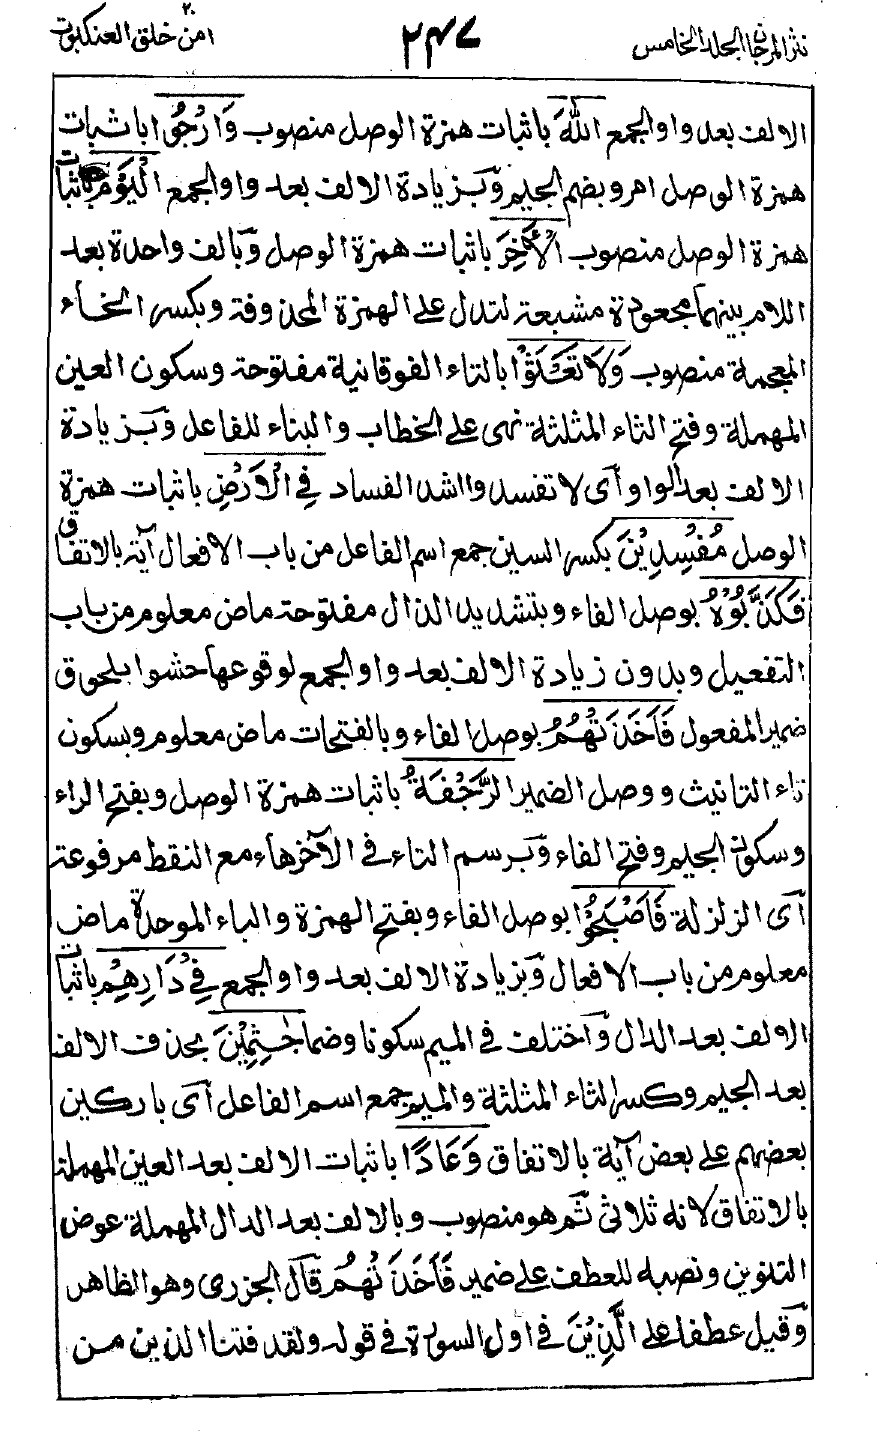 نثر المرجان المجلد الخامس
٢٤٧
٢٠ امن خلق العنكبوت
الالف بعد واو الجمع اللّٰهَ باثبات همزة الوصل منصوب وَارْجُوا باثبات
همزة الوصل امر وبضم الجيم وَبزيادة الالف بعد واو الجمع الْيَوْمَ باثبات
همزة الوصل منصوب الْاٰخِرَ باثبات همزة الوصل وَبالف واحدة بعد
اللام بينهما مجعودة مشبعة لتدل على الهمزة المحذوفة وبكسر الخاء
المعجمة منصوب وَلَا تَعْثَوْا بالتاء الفوقانية مفتوحة وسكون العين
المهملة وفتح الثاء المثلثة نهى على الخطاب والبناء للفاعل وَبزيادة
الالف بعد الواو آى لا تفسدوا اشد الفساد فِي الْاَرْضِ باثبات همزة
الوصل مُفْسِدِيْنَ بكسر السين جمع اسم الفاعل من باب الافعال آية بالاتفاق
فَكَذَّبُوْهُ بوصل الفاء وبتشديد الذال مفتوحة ماض معلوم من باب
التفعيل وبدون زيادة الالف بعد واو الجمع لوقوعها حشوا بلحوق
ضمير المفعول فَاَخَذَتْهُمُ بوصل الفاء وبالفتحات ماض معلوم وبسكون
تاء التانيث ووصل الضمير الرَّجْفَةُ باثبات همزة الوصل وبفتح الراء
وسكون الجيم وفتح الفاء وَبرسم التاء في الآخر هاء مع النقط مرفوعة
آى الزلزلة فَاَصْبَحُوْا بوصل الفاء وبفتح الهمزة والباء الموحدة ماض
معلوم من باب الافعال وَبزيادة الالف بعد واو الجمع فِيْ دَارِهِمْ باثبات
الالف بعد الدال وَاختلف في الميم سكونا وضما جٰثِمِيْنَ بحذف الالف
بعد الجيم وكسر الثاء المثلثة والميم جمع اسم الفاعل آى باركين
بعضهم على بعض آية بالاتفاق وَعَادًا باثبات الالف بعد العين المهملة
بالاتفاق لانه ثلاثي ثم هو منصوب وبالالف بعد الدال المهملة عوض
التنوين ونصبه للعطف على ضمير فَاَخَذَتْهُمُ قَال الجزرى وهو الظاهر
وَقيل عطفا على الَّذِيْنَ في اول السورة في قوله ولقد فتنا الذين من